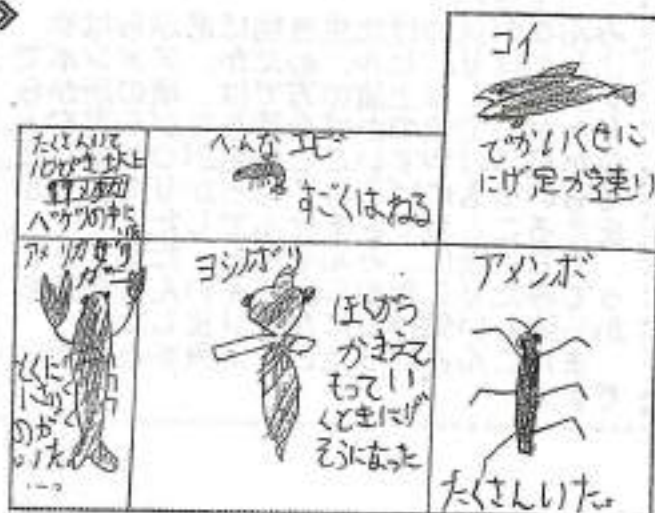 コイ
でかいくせに
にげ足が速い
たくさんいて
10ぴき以上
へんなエビ
すごくはねる
アメリカザリ
ガニ
とくに
いた
ヨシノボリ
ぼくがつ
かまえて
もってい
くときにげ
そうになった
アメンボ
たくさんいたよ